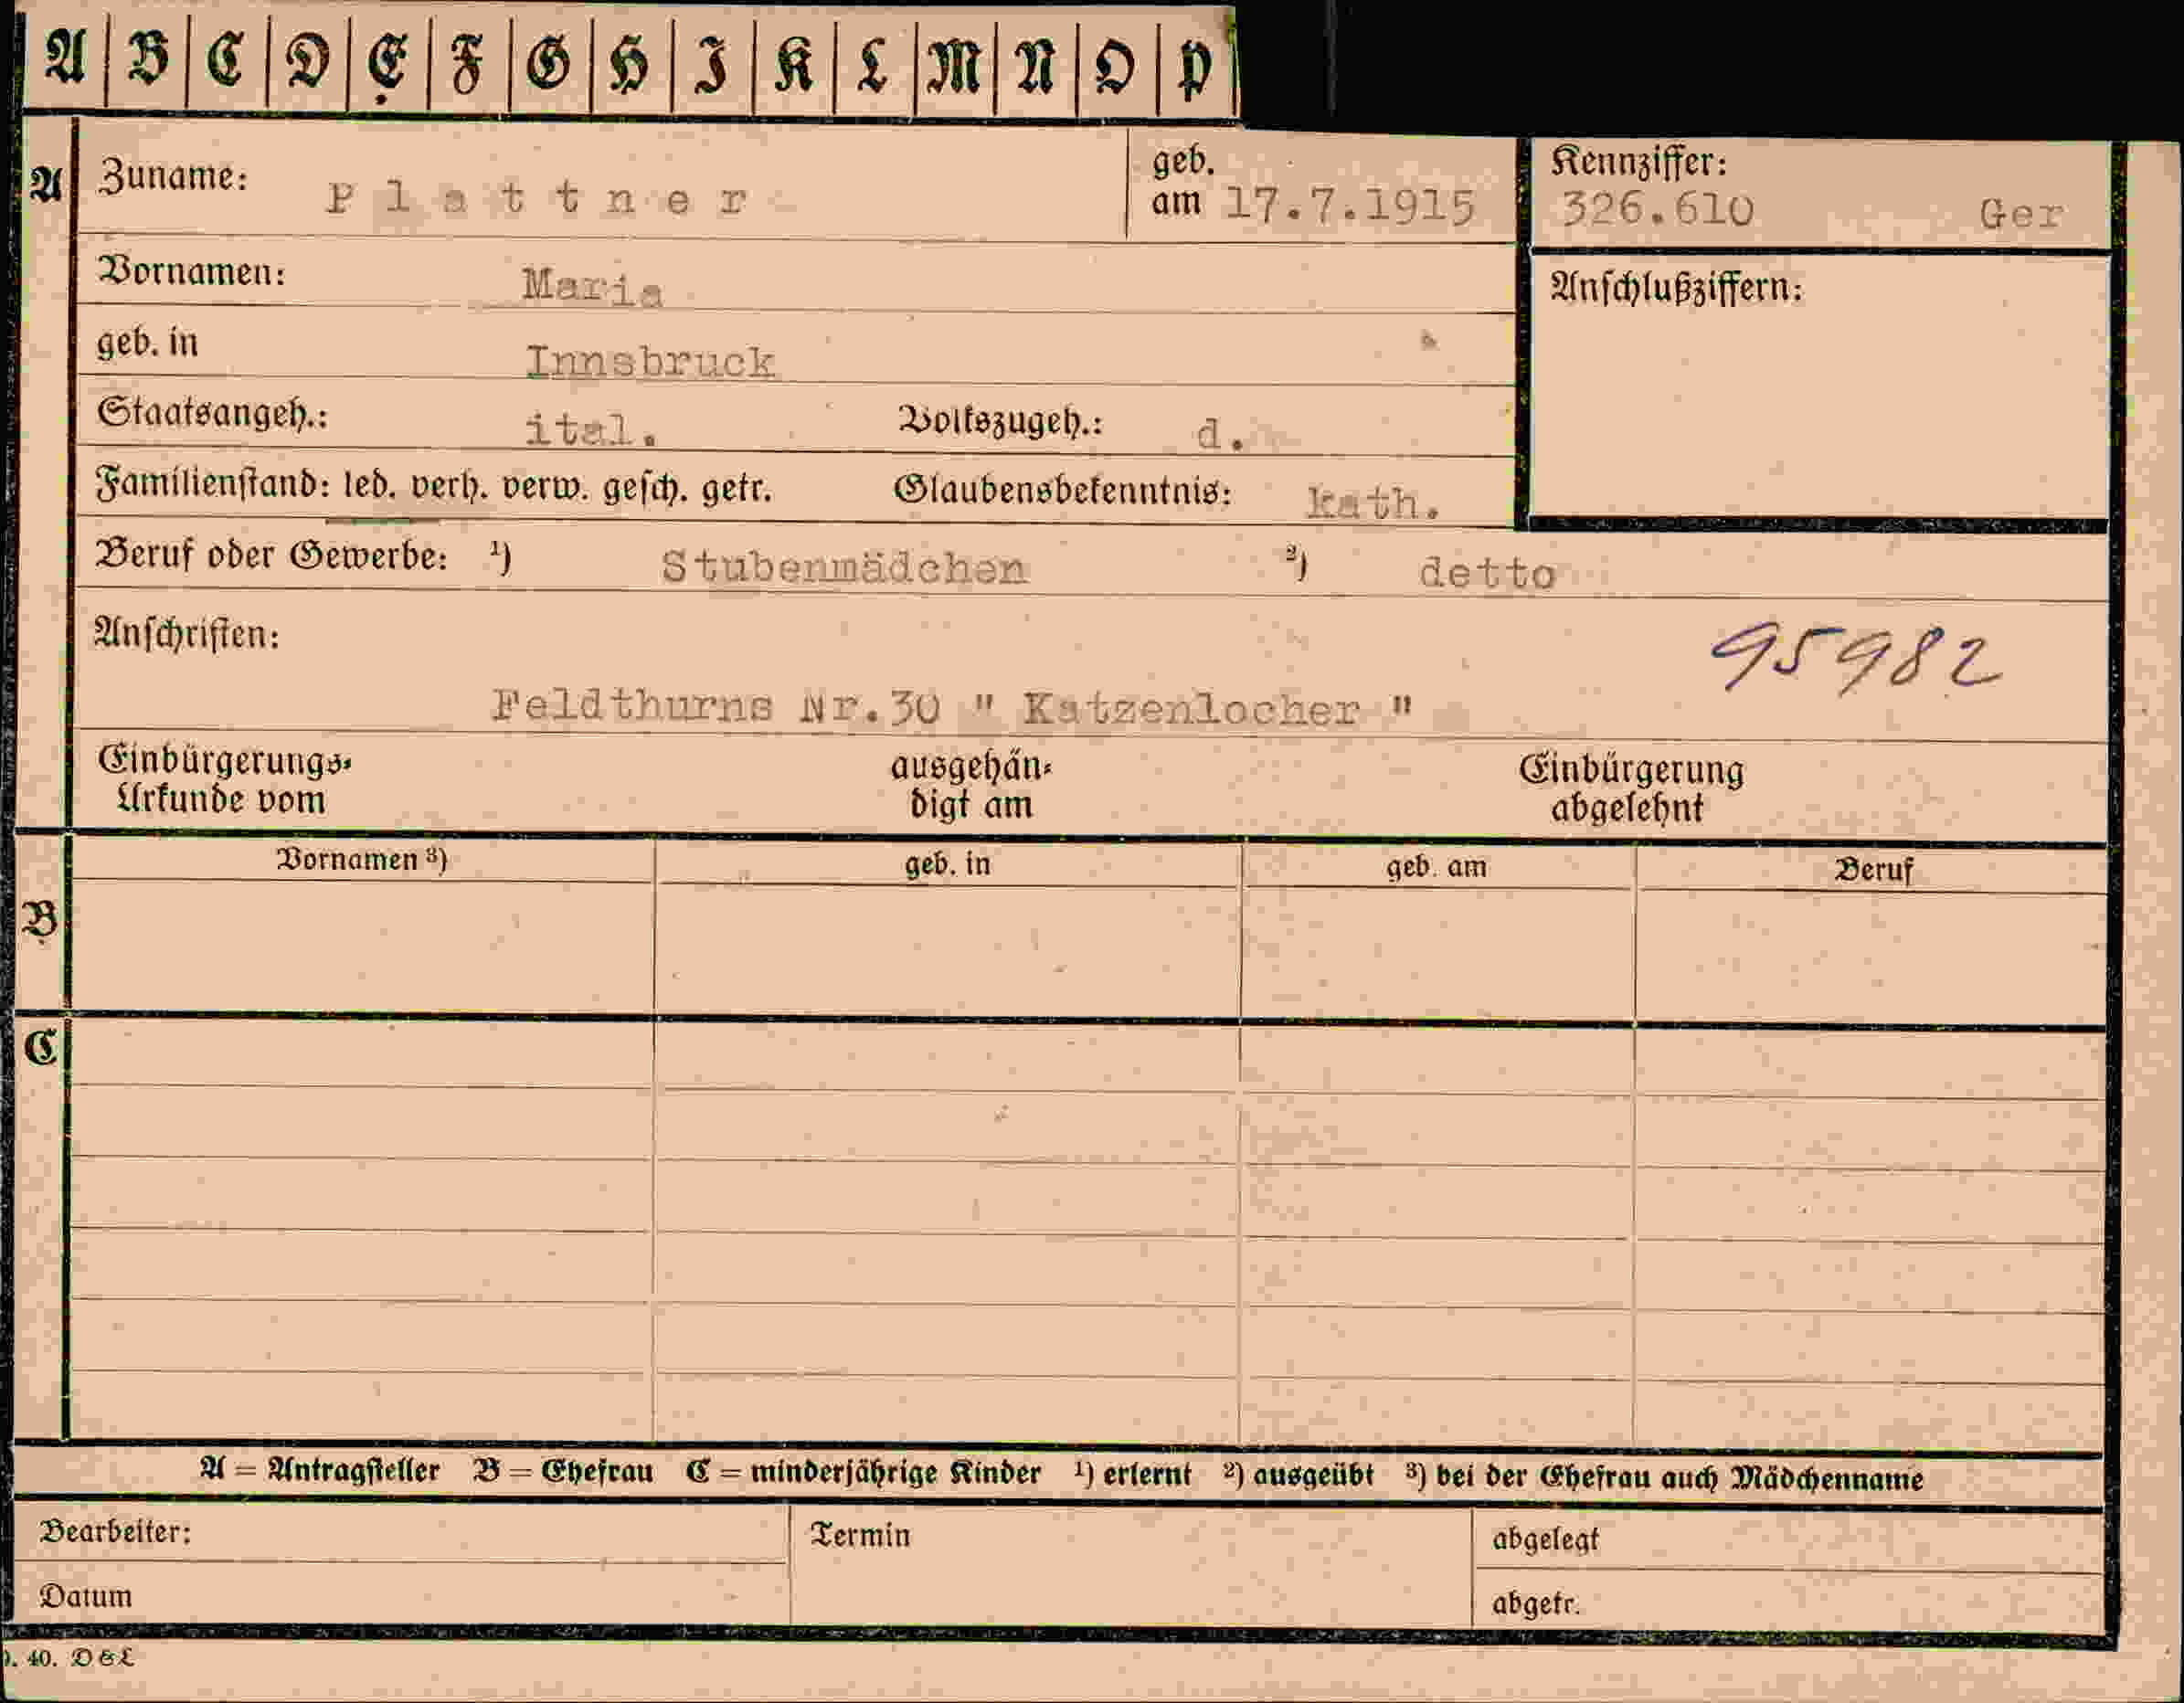 A B C D E F G H I K L M N O P
A Zuname: Plattner geb. am 17.7.1915 Kennziffer: 326.610 Ger
Vornamen: Maria Anschlußziffern:
geb. in Innsbruck
Staatsangeh.: ital. Volkszugeh.: d.
Familienstand: led. verh. verw. gesch. getr. Glaubensbekenntnis: kath.
Beruf oder Gewerbe: ¹) Stubenmädchen ²) detto
Anschriften: 95982
Feldthurns Nr.30 " Katzenlocher "
Einbürgerungs- ausgehän- Einbürgerung
Urkunde vom digt am abgelehnt
Vornamen ³) geb. in geb. am Beruf
B
C
A = Antragsteller B = Ehefrau C = minderjährige Kinder ¹) erlernt ²) ausgeübt ³) bei der Ehefrau auch Mädchenname
Bearbeiter: Termin abgelegt
Datum abgetr.
40. D & L